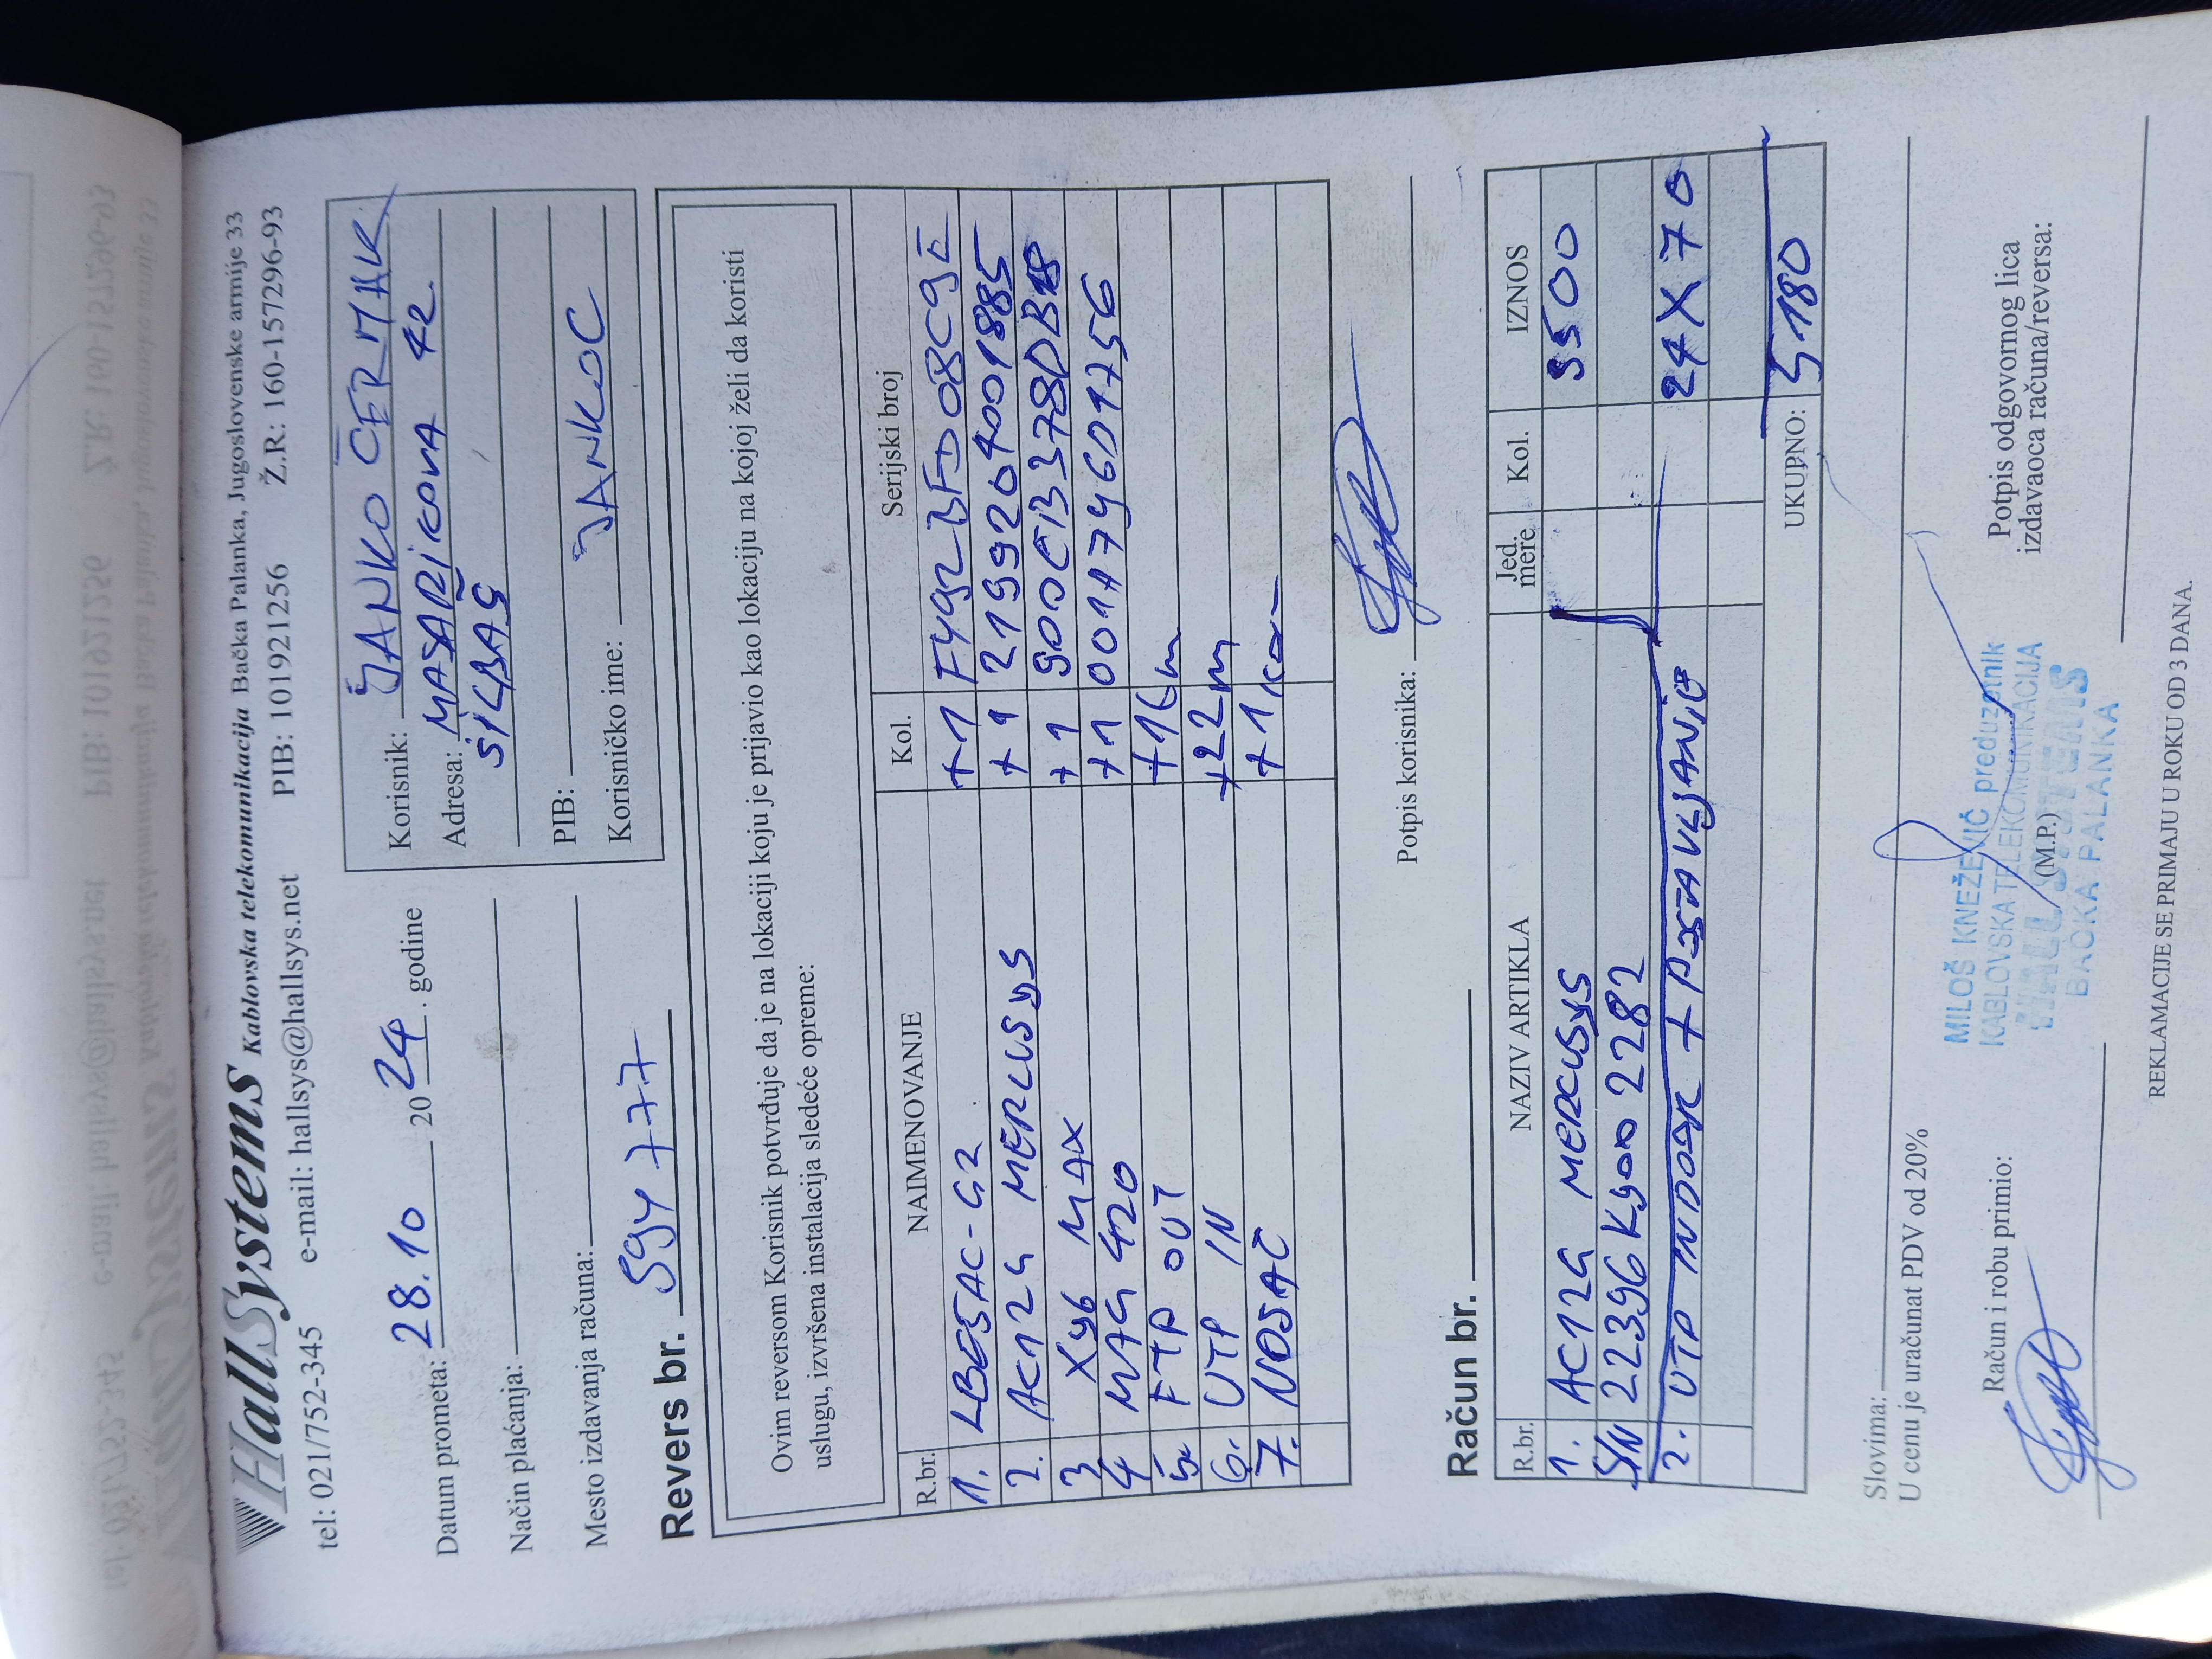 HallSystems Kablovska telekomunikacija Bačka Palanka, Jugoslovenske armije 33
tel: 021/752-345 e-mail: hallsys@hallsys.net PIB: 101921256 Ž.R: 160-157296-93
Datum prometa: 28.10 2024. godine
Način plaćanja:
Mesto izdavanja računa:
Korisnik: JANKO ČERMAK
Adresa: MASARIKOVA 42
SILBAŠ
PIB:
Korisničko ime: JANKOC
Revers br. 59477
Ovim reversom Korisnik potvrđuje da je na lokaciji koju je prijavio kao lokaciju na kojoj želi da koristi
uslugu, izvršena instalacija sledeće opreme:
R.br. NAIMENOVANJE Kol. Serijski broj
1. LBE5AC-G2 +1 F492BFD08C9E
2. AC12G MERCUSYS +1 2199204001885
3 X96 MAX +1 900EB378DB18
4 MAG 420 +1 001A79601756
5. FTP OUT +16m
6. UTP IN +22m
7. NOSAČ +1 kom
Potpis korisnika:
Račun br.
R.br. NAZIV ARTIKLA Jed. mere Kol. IZNOS
1. AC12G MERCUSYS 3500
S/N 22396K9002282
2. UTP INDOOR + POSTAVLJANJE 24X70
UKUPNO: 5180
Slovima:
U cenu je uračunat PDV od 20%
Račun i robu primio:
MILOŠ KNEŽEVIĆ preduzetnik
KABLOVSKA TELEKOMUNIKACIJA
HALL SYSTEMS
BAČKA PALANKA
(M.P.)
Potpis odgovornog lica
izdavaoca računa/reversa:
REKLAMACIJE SE PRIMAJU U ROKU OD 3 DANA.